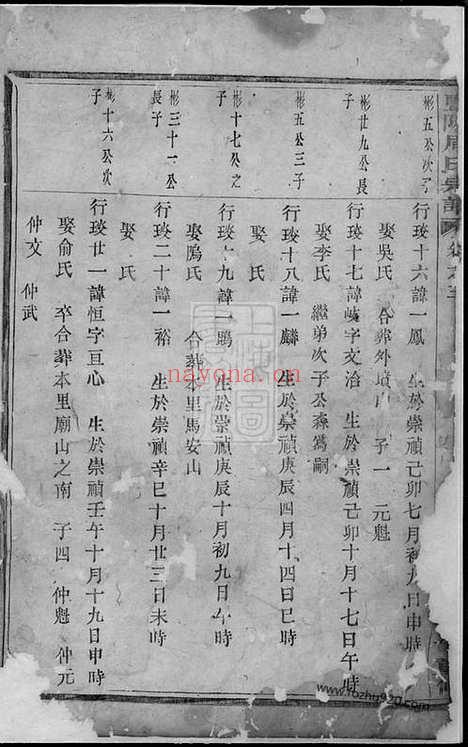 周氏宗譜
彬五公次子
行珓十六諱一鳳 生於崇禎己卯七月初九日申時
娶吳氏 合葬外 山 子一 元魁
彬廿九公長子
行珓十七諱 字文洽 生於崇禎己卯十月十七日午時
娶李氏 繼弟次子公森爲嗣
彬五公三子
行珓十八諱一麟 生於崇禎庚辰四月十四日巳時
娶 氏
彬十七公之子
行珓十九諱一鵬 生於崇禎庚辰十月初九日午時
娶 氏 合葬本里馬安山
彬三十一公長子
行珓二十諱一裕 生於崇禎辛巳十月廿三日未時
娶 氏
彬十六公次子
行珓廿一諱恒字亘心 生於崇禎壬午十月十九日申時
娶俞氏 卒合葬本里廟山之南 子四 仲魁 仲元
仲文 仲武
上海圖
nayona.cn
www.yozhu920.com